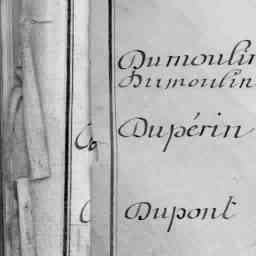 Dumoulin
Dumoulin
Dupérin
Dupont